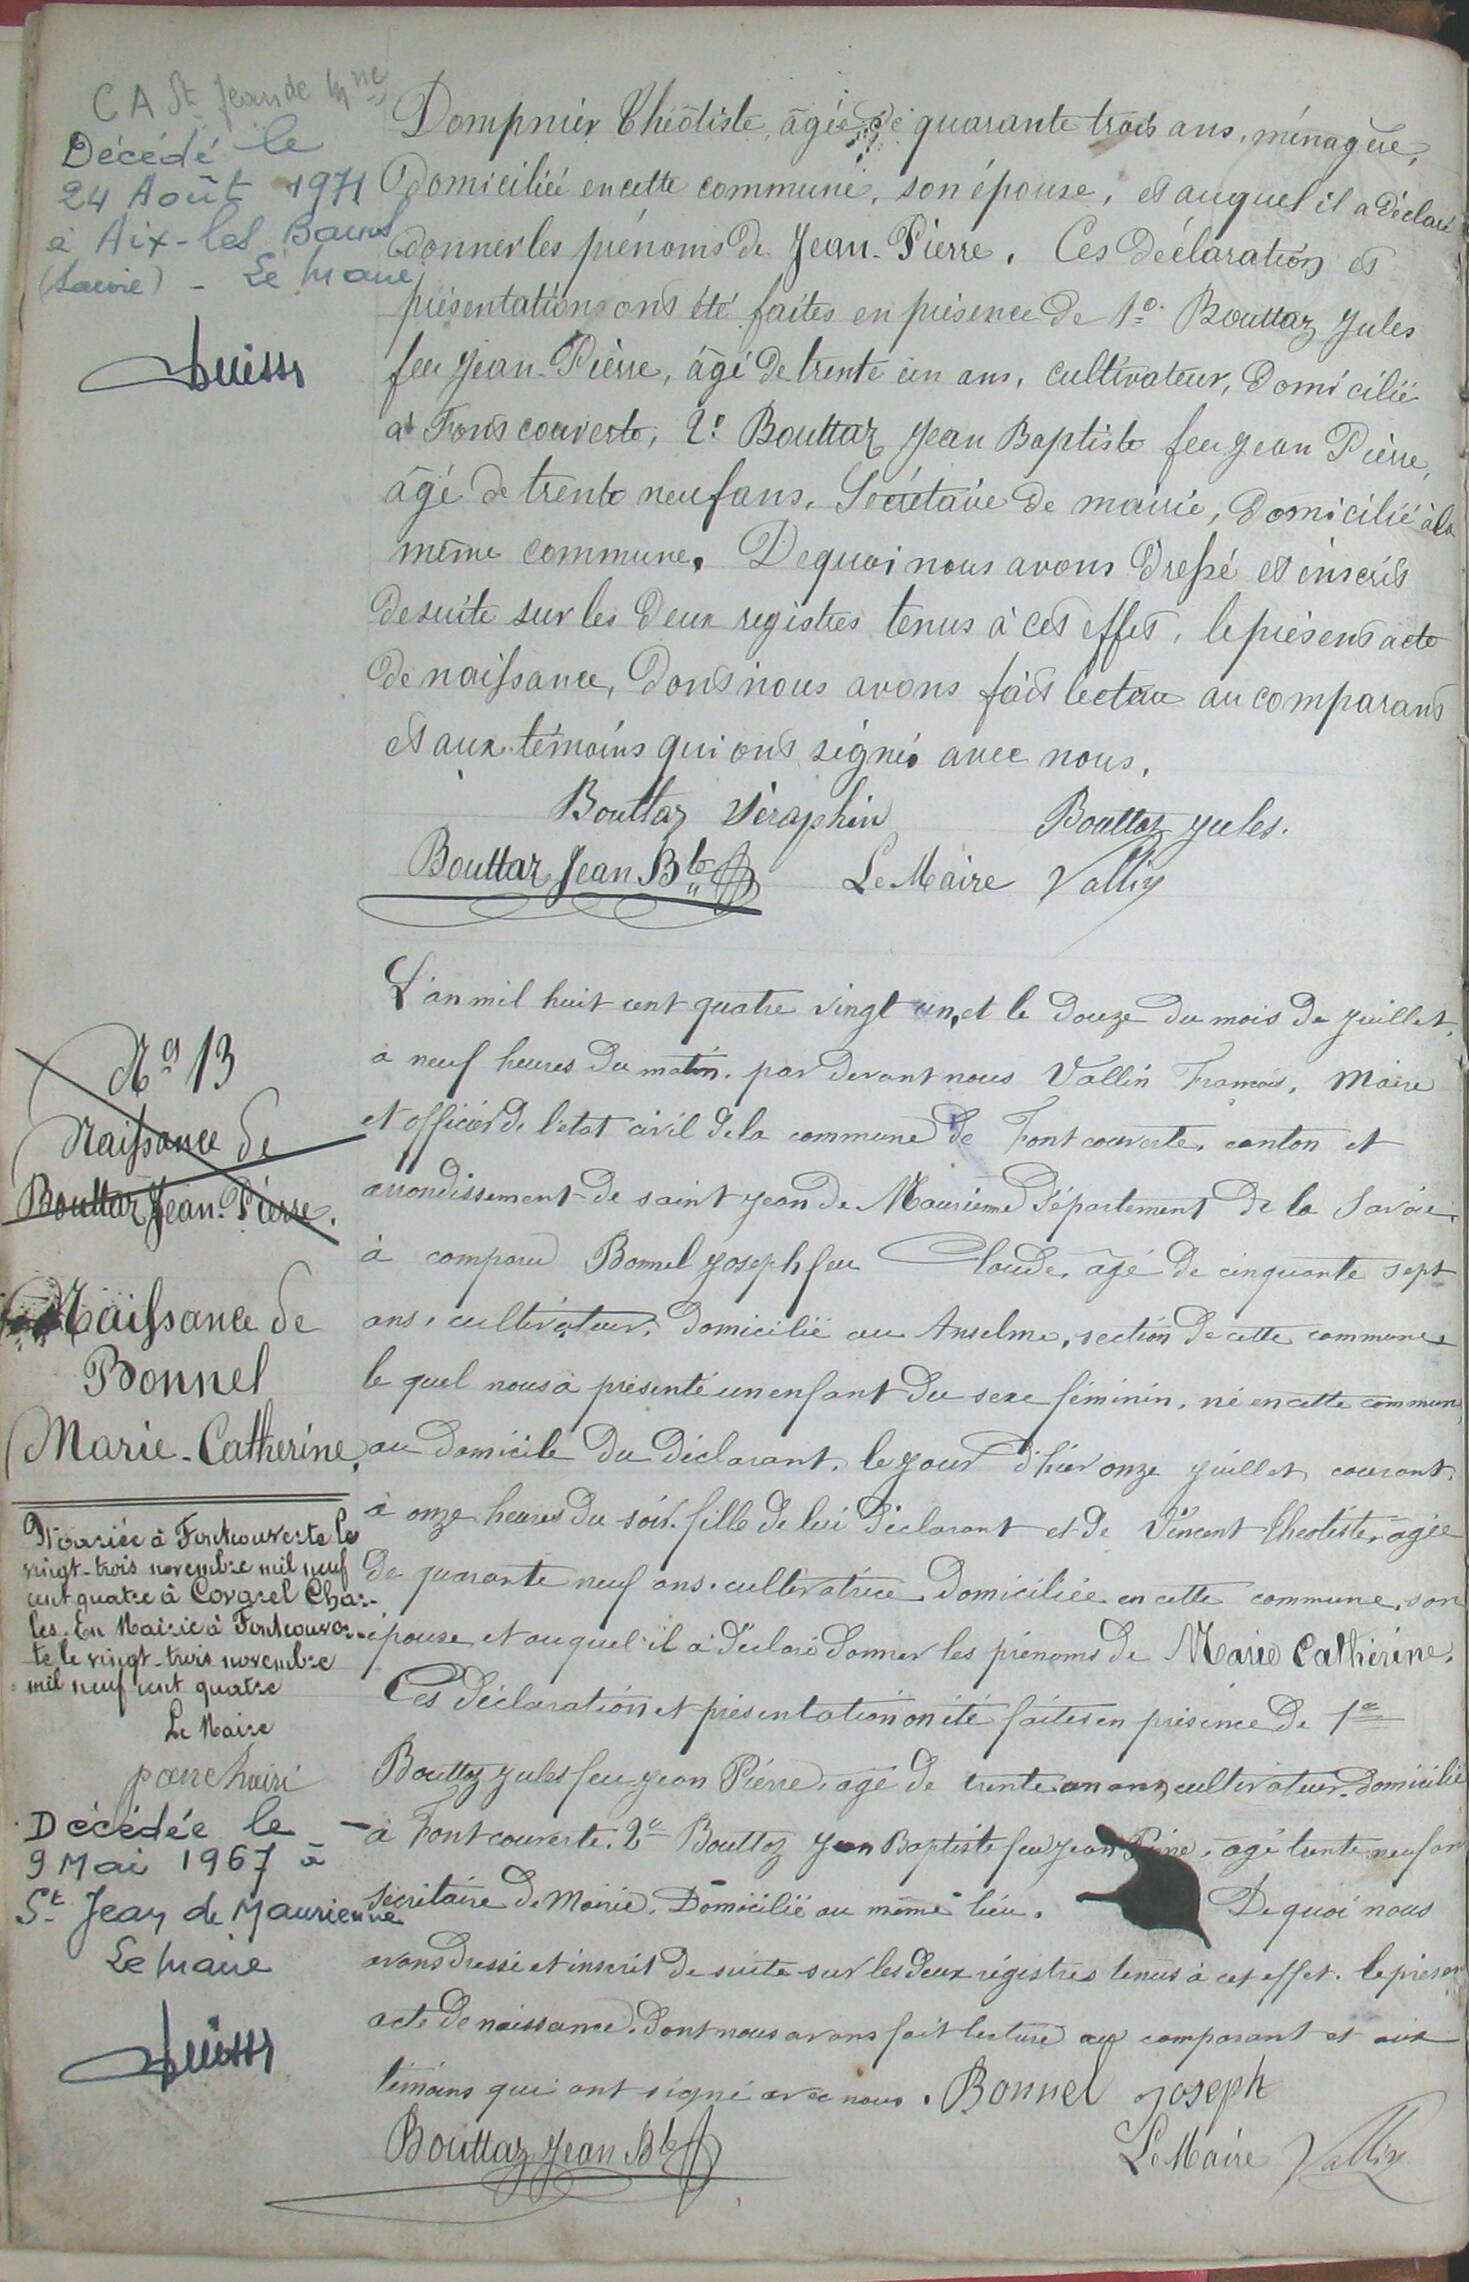 C A St Jean de Mne
Décédé le
24 Août 1971
à Aix-les Bains
(Savoie) - Le Maire
Dompnier Théotiste, âgée de quarante trois ans, ménagère,
domiciliée en cette commune, son épouse, et auquel il a déclaré
donner les prénoms de Jean-Pierre. Ces déclaration et
présentation ont été faites en présence de 1o Bouttaz Jules
feu Jean-Pierre, âgé de trente un ans, cultivateur, domicilié
à Fontcouverte, 2o Bouttaz Jean Baptiste feu Jean Pierre,
âgé de trente neuf ans, Secrétaire de mairie, domicilié à la
même commune. De quoi nous avons dressé et inscrit
de suite sur les deux registres tenus à cet effet, le présent acte
de naissance, dont nous avons fait lecture au comparant
et aux témoins qui ont signé avec nous.
Bouttaz Séraphin Bouttaz Jules.
Bouttaz Jean Bte Le Maire Vallin
No 13
Naissance de
Bouttaz Jean-Pierre.
Naissance de
Bonnel
Marie-Catherine
Mariée à Fontcouverte le
vingt-trois novembre mil neuf
cent quatre à Covarel Char-
les. En Mairie à Fontcouver-
te le vingt-trois novembre
mil neuf cent quatre
Le Maire
Décédée le
9 Mai 1967 à
St Jean de Maurienne
Le Maire
L'an mil huit cent quatre vingt un, et le douze du mois de juillet,
à neuf heures du matin, par devant nous Vallin François, Maire
et officier de l'etat civil de la commune de Fontcouverte, canton et
arrondissement de saint Jean de Maurienne Département de la Savoie,
à comparu Bonnel Joseph feu Claude, âgé de cinquante sept
ans, cultivateur, domicilié au Anselme, section de cette commune
le quel nous a présenté un enfant du sexe féminin, né en cette commune
au domicile du déclarant, le jour d'hier onze juillet courant,
à onze heures du soir, fille de lui déclarant et de Vincent Theotiste, agée
de quarante neuf ans, cultivatrice domiciliée en cette commune, son
épouse et auquel il a déclaré donner les prénoms de Marie Catherine.
Ces déclaration et présentation on été faites en présence de 1o
Bouttaz Jules feu Jean Pierre, agé de trente un ans, cultivateur, domicilié
à Fontcouverte. 2o Bouttaz Jean Baptiste feu Jean Pierre, agé trente neuf an
secrétaire de Mairie, Domicilié au même lieu. De quoi nous
avons dressé et inscrit de suite sur les deux régistres tenus à cet effet, le présen
acte de naissance, dont nous avons fait lecture au comparant et aux
témoins qui ont signé avec nous. Bonnel Joseph
Bouttaz Jean Bte Le Maire Vallin